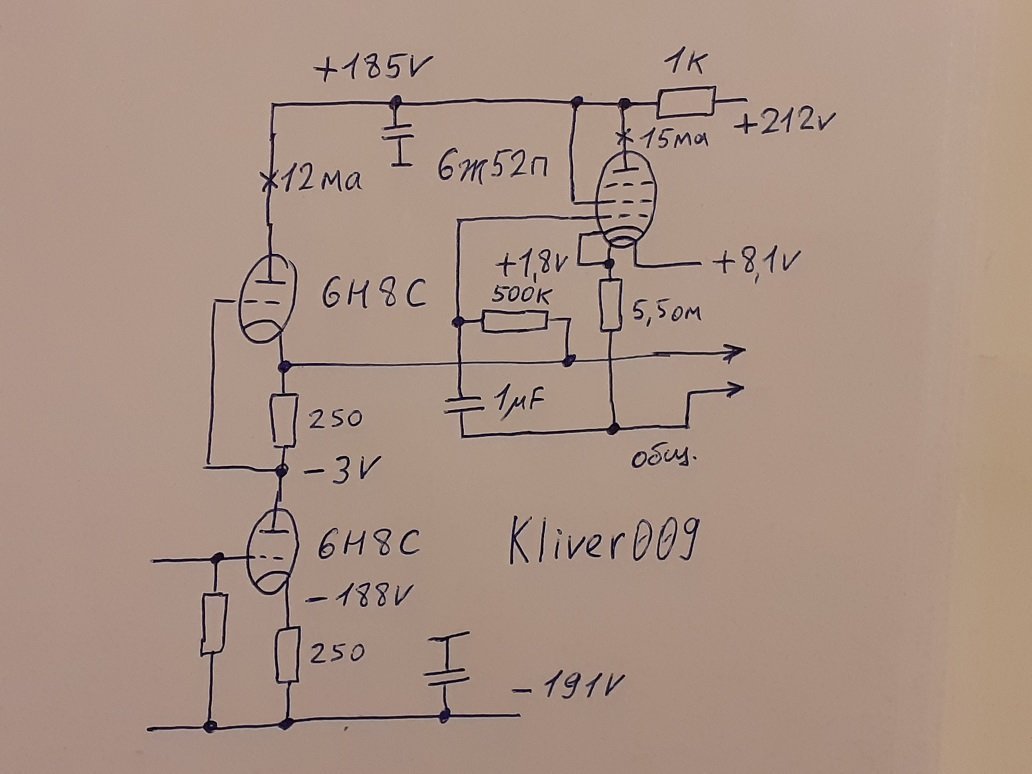 +185V
1K
+212V
15ма
6ж52п
12ма
+1,8V
+8,1V
6Н8С
500к
5,5ом
250
1μF
-3V
общ.
6Н8С
Kliver009
-188V
250
-191V